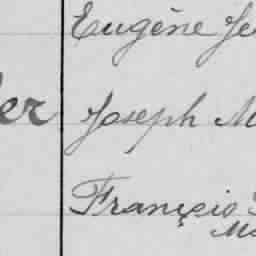 Eugène Je
er Joseph M
François